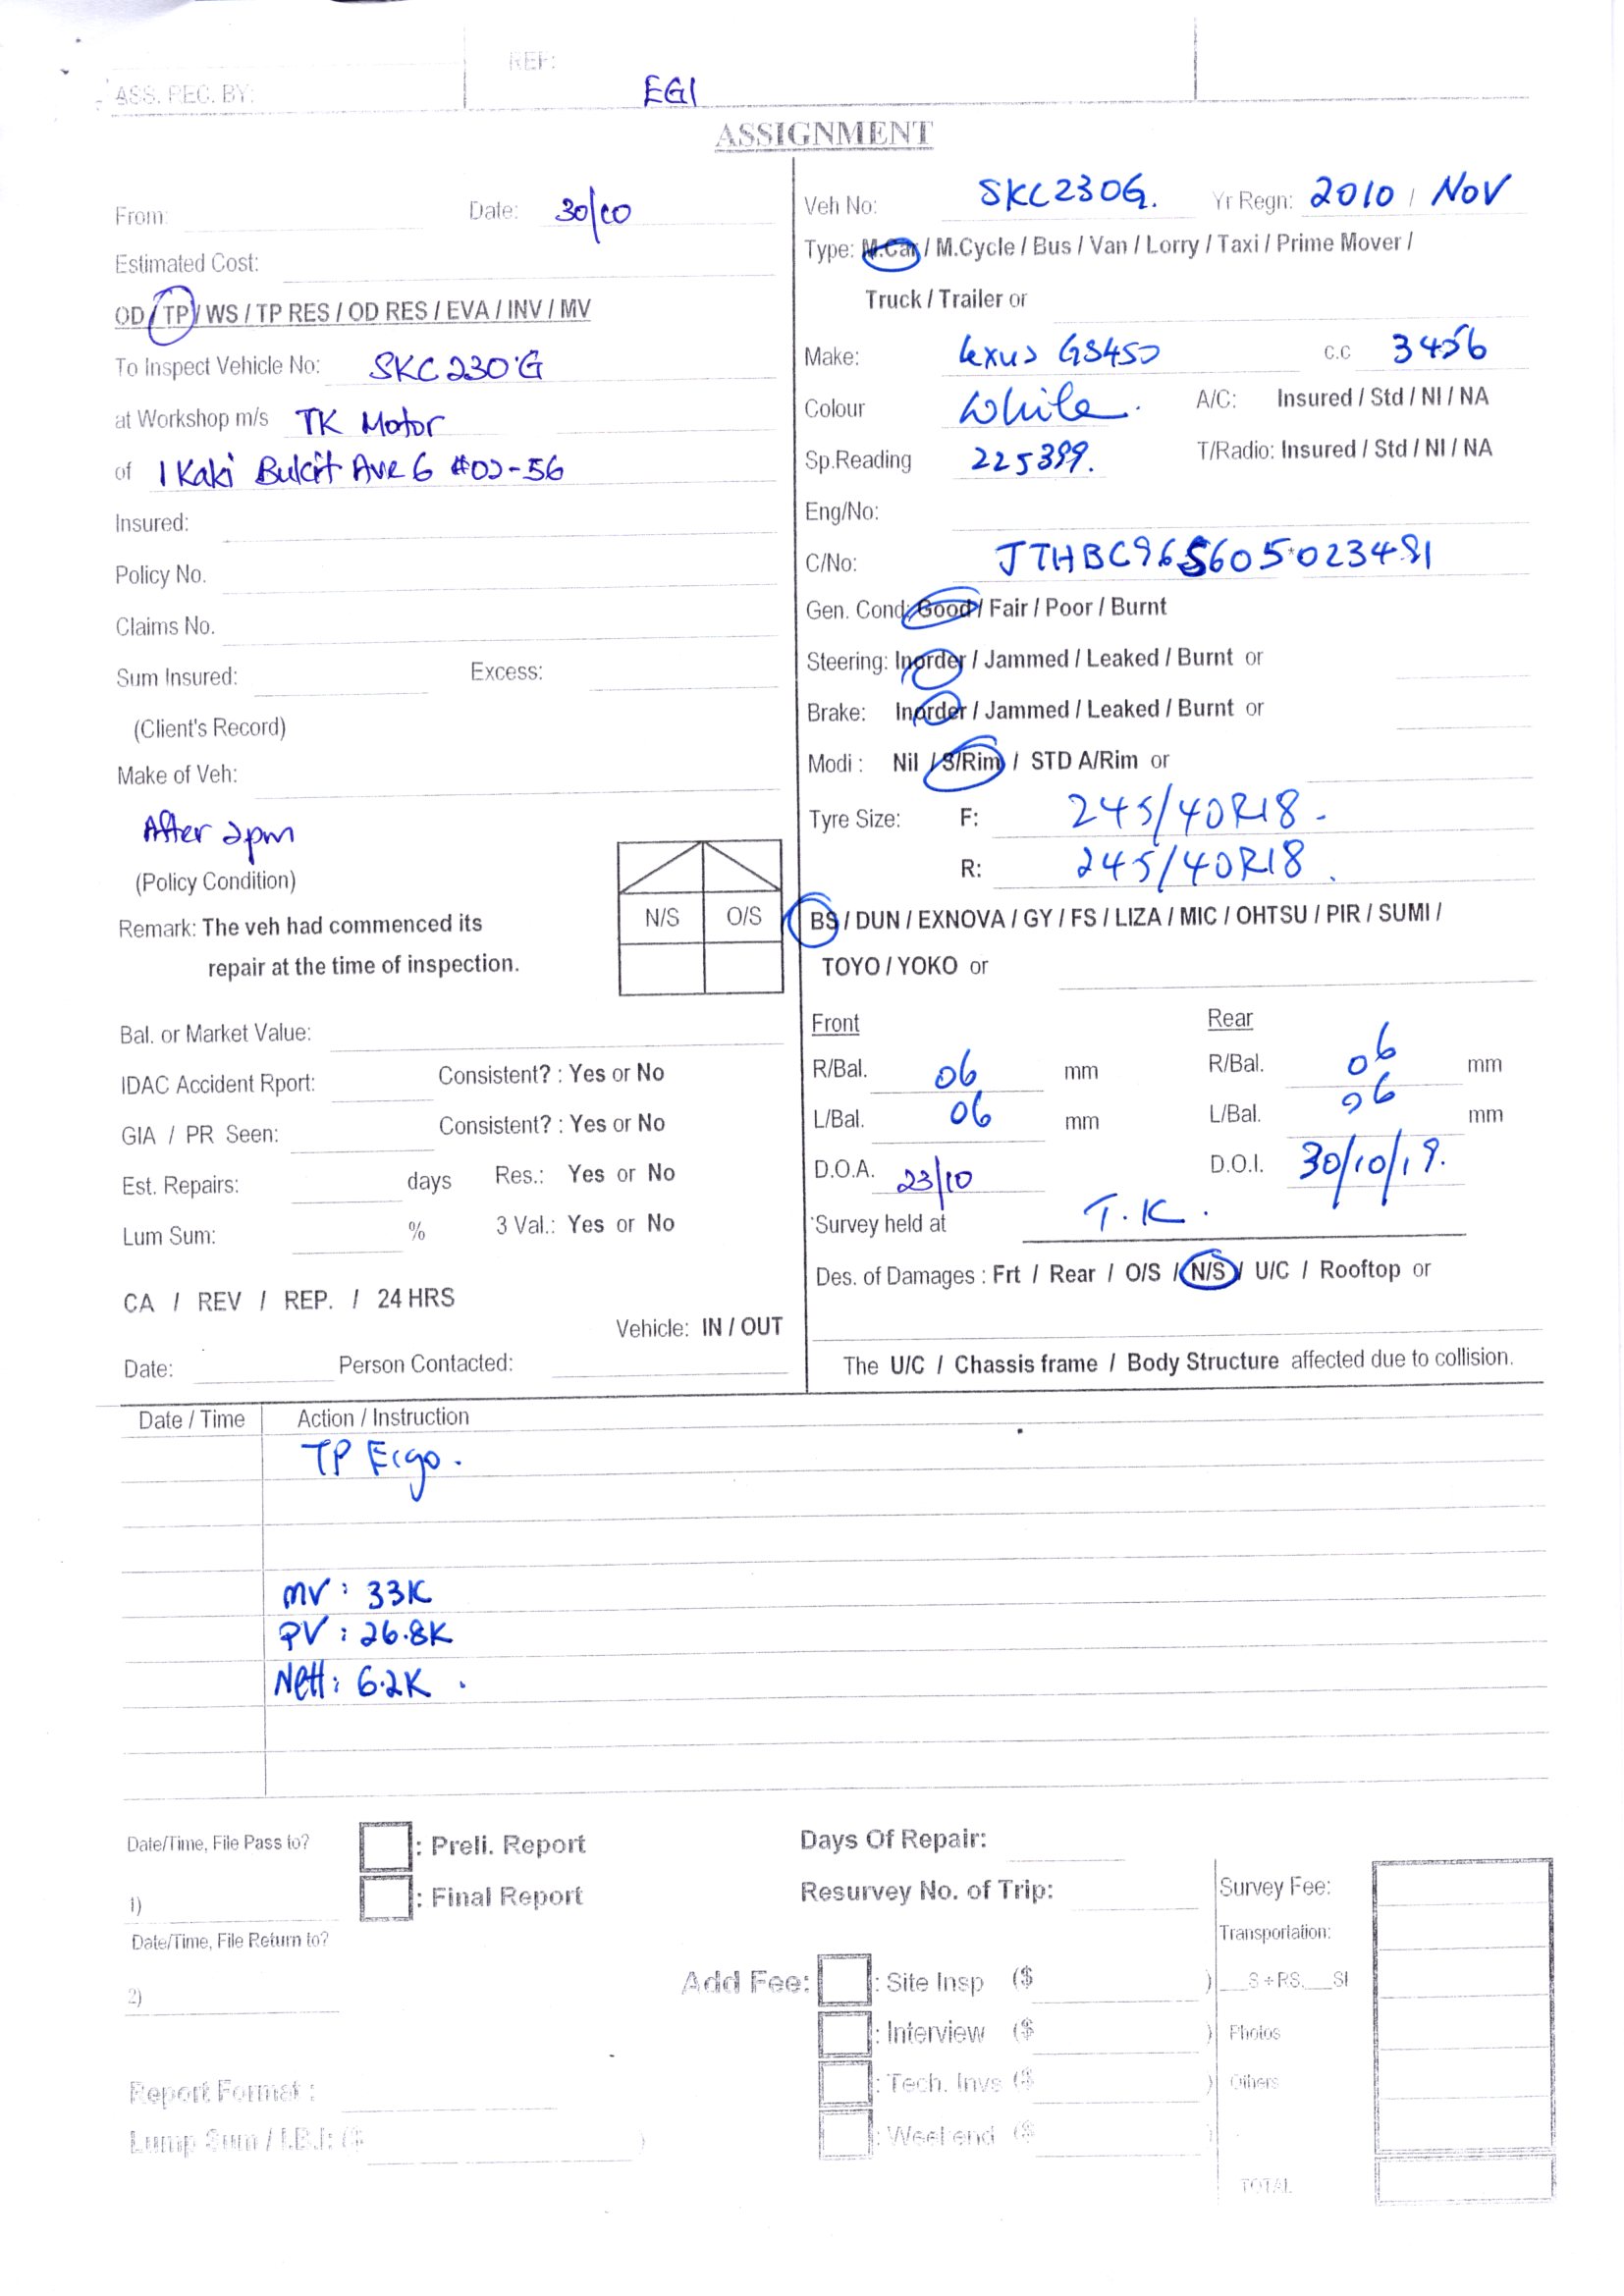 REF:
ASS. REC. BY:
EGI
ASSIGNMENT
From: Date: 30/10
Estimated Cost:
OD / TP / WS / TP RES / OD RES / EVA / INV / MV
To Inspect Vehicle No: SKC230G
at Workshop m/s TK Motor
of 1 Kaki Bukit Ave 6 #02-56
Insured:
Policy No.
Claims No.
Sum Insured: Excess:
(Client's Record)
Make of Veh:
After 2pm
(Policy Condition)
Remark: The veh had commenced its
repair at the time of inspection.
N/S O/S
Bal. or Market Value:
IDAC Accident Rport: Consistent? : Yes or No
GIA / PR Seen: Consistent? : Yes or No
Est. Repairs: days Res.: Yes or No
Lum Sum: % 3 Val.: Yes or No
CA / REV / REP. / 24 HRS
Vehicle: IN / OUT
Date: Person Contacted:
Veh No: SKC230G. Yr Regn: 2010 / NOV
Type: M.Car / M.Cycle / Bus / Van / Lorry / Taxi / Prime Mover /
Truck / Trailer or
Make: Lexus GS450 c.c 3456
Colour White. A/C: Insured / Std / NI / NA
Sp.Reading 225399. T/Radio: Insured / Std / NI / NA
Eng/No:
C/No: JTHBC96S605023481
Gen. Cond: Good / Fair / Poor / Burnt
Steering: Inorder / Jammed / Leaked / Burnt or
Brake: Inorder / Jammed / Leaked / Burnt or
Modi : Nil / S/Rim / STD A/Rim or
Tyre Size: F: 245/40R18.
R: 245/40R18.
BS / DUN / EXNOVA / GY / FS / LIZA / MIC / OHTSU / PIR / SUMI /
TOYO / YOKO or
Front Rear
R/Bal. 06 mm R/Bal. 06 mm
L/Bal. 06 mm L/Bal. 06 mm
D.O.A. 23/10 D.O.I. 30/10/19.
Survey held at T.K.
Des. of Damages : Frt / Rear / O/S / N/S / U/C / Rooftop or
The U/C / Chassis frame / Body Structure affected due to collision.
Date / Time Action / Instruction
TP Ergo.
MV : 33K
PV : 26.8K
Nett: 6.2K.
Date/Time, File Pass to? : Preli. Report Days Of Repair:
1) : Final Report Resurvey No. of Trip: Survey Fee:
Date/Time, File Return to? Transportation:
2) Add Fee: : Site Insp ($ ) __S + RS.__SI
: Interview ($ ) Photos
Report Format : : Tech. Invs ($ ) Others
Lump Sum / I.B.I: ($ ) : Weekend ($ )
TOTAL